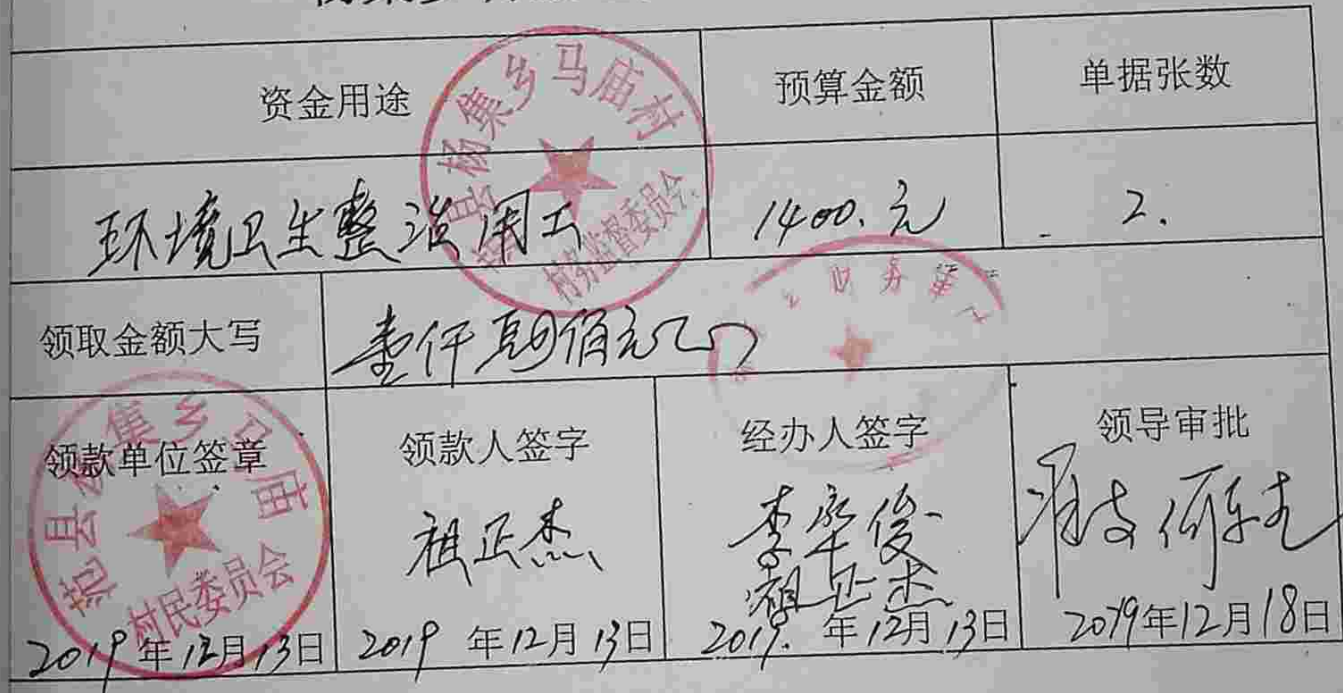 资金用途 预算金额 单据张数
环境卫生整治用工 1400.元 2.
领取金额大写 壹仟肆佰元
领款单位签章 领款人签字 经办人签字 领导审批
祖正杰 李华俊
祖正杰
2019年12月13日 2019年12月13日 2019.年12月13日 2019年12月18日
范县杨集乡马庙村
村务监督委员会
范县杨集乡马庙
村民委员会